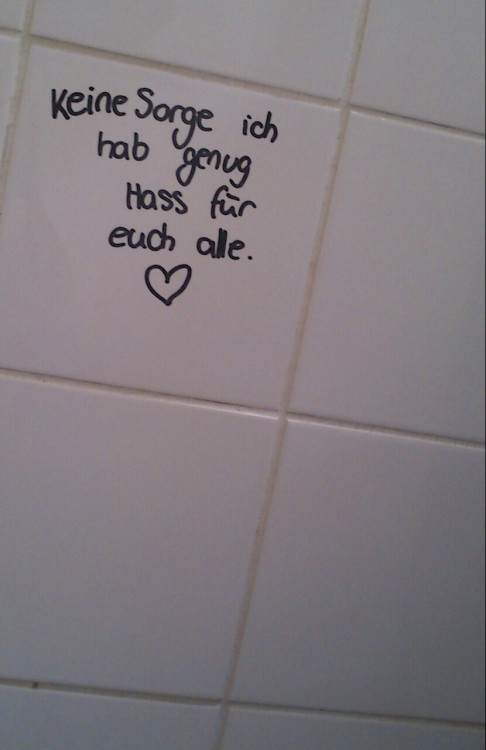 Keine Sorge ich
hab genug
Hass für
euch alle.